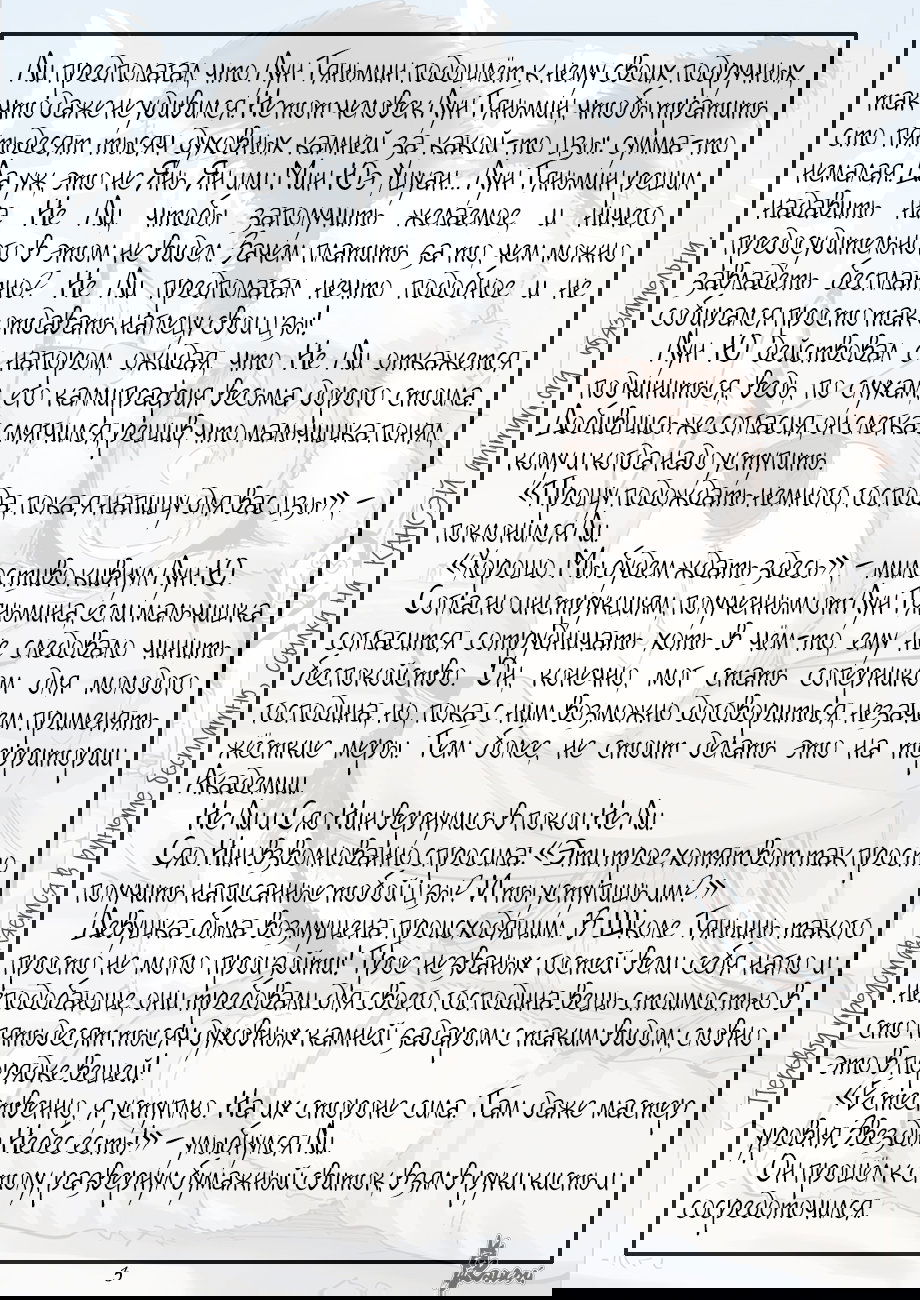 Ли предполагал, что Лун Тяньмин подошлёт к нему своих подручных,
так что даже не удивился. Не тот человек Лун Тяньмин, чтобы тратить
сто пятьдесят тысяч духовных камней за какой-то цзы: сумма-то
немалая. Да уж, это не Янь Ян или Мин Юэ Хухан... Лун Тяньмин решил
надавить на Не Ли, чтобы заполучить желаемое, и ничего
предосудительного в этом не видел. Зачем платить за то, чем можно
завладеть бесплатно? Не Ли предполагал нечто подобное и не
собирался просто так отдавать наглецу свои цзы!
Лун Ю действовал с напором, ожидая, что Не Ли откажется
подчиниться, ведь, по слухам, его каллиграфия весьма дорого стоила.
Добившись же согласия, он слегка смягчился, решив что мальчишка понял,
кому и когда надо уступить.
«Прошу подождать немного, господа, пока я напишу для вас цзы», –
поклонился Ли.
«Хорошо. Мы будем ждать здесь» – милостиво кивнул Лун Ю.
Согласно инструкциям, полученным от Лун Тяньмина, если мальчишка
согласится сотрудничать хоть в чём-то, ему не следовало чинить
беспокойство. Он, конечно, мог стать соперником для молодого
господина, но пока с ним возможно договориться, незачем применять
жёсткие меры. Тем более, не стоит делать это на территории
Академии.
Не Ли и Сяо Нин вернулись в покои Не Ли.
Сяо Нин взволнованно спросила: «Эти трое хотят вот так просто
получить написанные тобой цзы? И ты уступишь им?»
Девушка была возмущена происходящим. В Школе Тяньинь такого
просто не могло произойти! Трое незваных гостей вели себя нагло и
неподобающе, они требовали для своего господина вещь стоимостью в
сто пятьдесят тысяч духовных камней задаром с таким видом, словно
это в порядке вещей!
«Естественно, я уступлю. На их стороне сила. Там даже мастер
уровня Звезды Небес есть!» – улыбнулся Ли.
Он прошёл к столу, развернул бумажный свиток, взял в руки кисть и
сосредоточился.
4